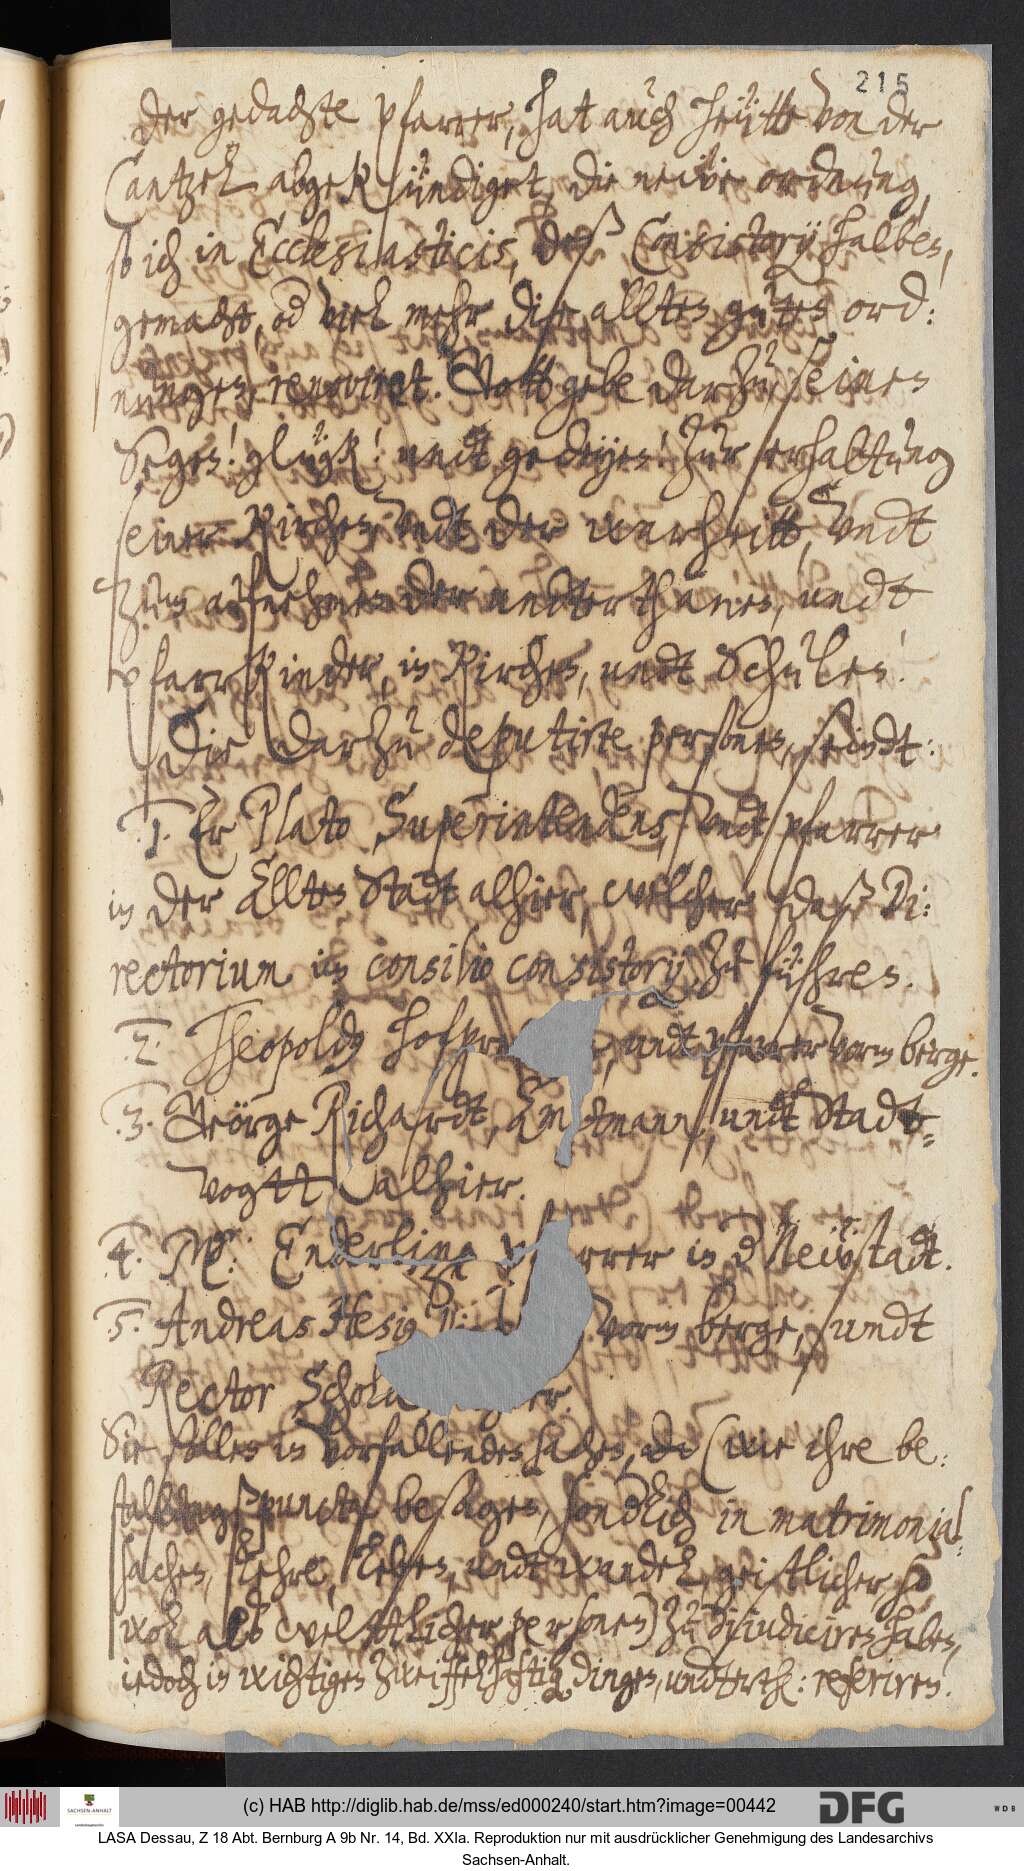 215
Der gedachte Pfarrer, hat auch heütte von der
Cantzel abgekündiget die neẅe ordnung,
so ich in Ecclesiasticis, deß Consistorij halben,
gemacht, od viel mehr die allten guten ord:
nungen, renoviret. Gott gebe darzu, seinen
Segen! glügk! undt gedeyen! zur erhalltung
seiner Kirchen, undt der warheitt, undt
zum aufnehmen der underthanen, undt
Pfarrkinder, in Kirchen, undt Schulen!
Die darzu deputirte personen, seindt:
1. Er Plato, Superintendens, undt pfarrer
in der Allten Stadt alhier, welcher daß Di:
rectorium im consilio consistorij, zu führen.
2. Theopoldus hofpre , undt pfarrer vorm berge.
3. Geörge Richardt, Amptmann, undt Stadt-
vogtt alhier.
4. M: Enderling rrer in d Neẅstadt.
5. Andreas Hesius vorm berge, undt
Rector
Sie sollen in vorfallenden sachen, die (wie ihre be:
stallungspuncta besagen, sonderlich in matrimonial
sachen, Lehre, Leben, undt wandel, geistlicher, so
wol alß welttlicher personen) zu dijudiciren haben,
iedoch in wichtigen zweiffelhaftig dingen, underth: referiren.
(c) HAB http://diglib.hab.de/mss/ed000240/start.htm?image=00442
SACHSEN-ANHALT
DFG
WDB
LASA Dessau, Z 18 Abt. Bernburg A 9b Nr. 14, Bd. XXIa. Reproduktion nur mit ausdrücklicher Genehmigung des Landesarchivs
Sachsen-Anhalt.